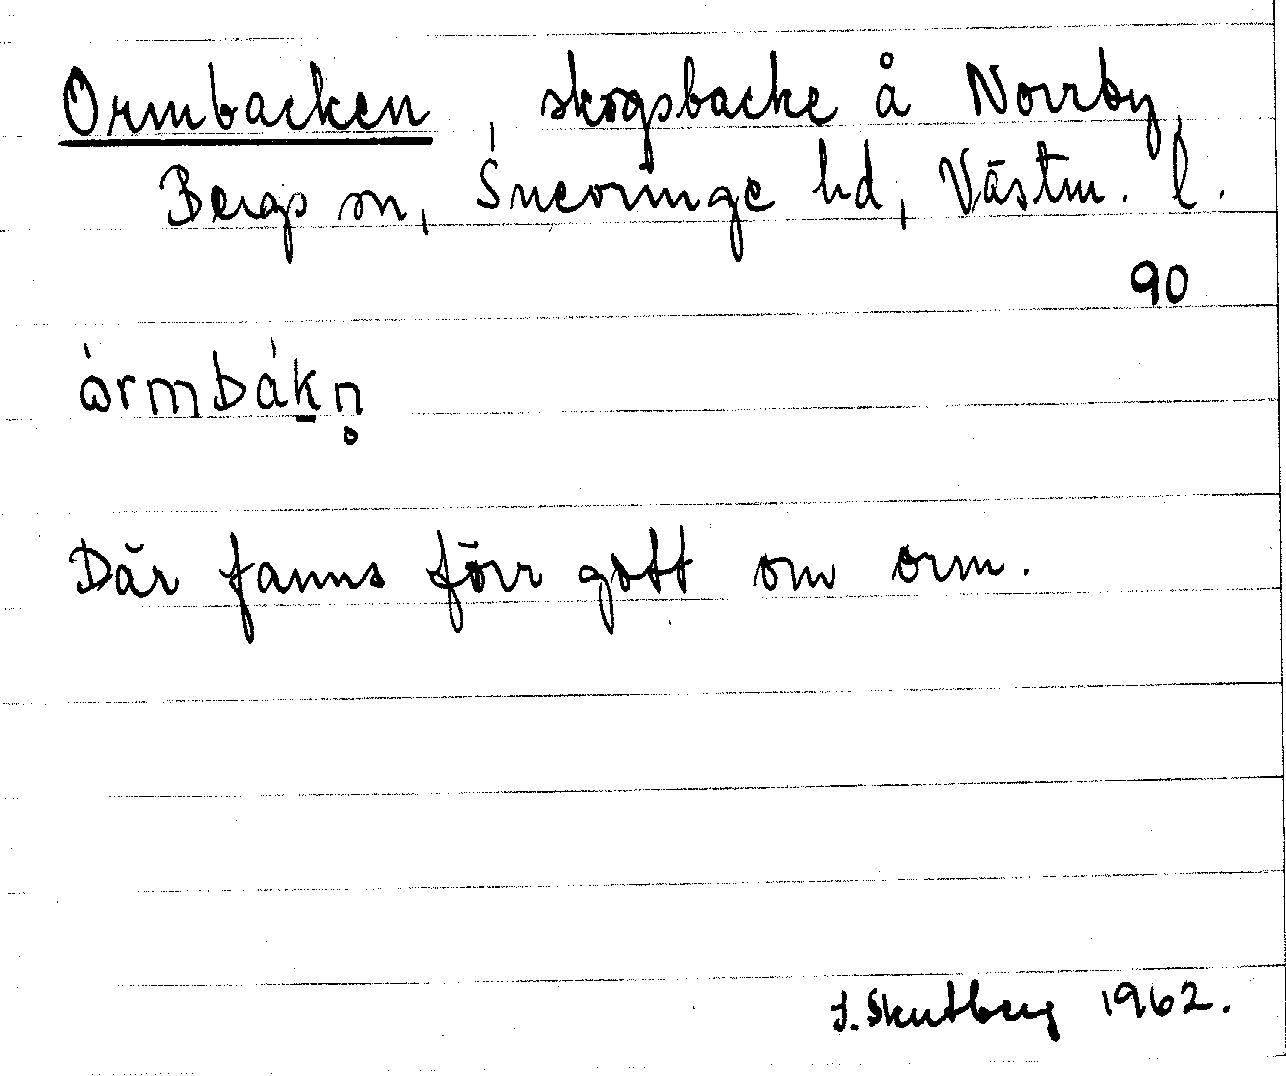 Ormbacken, skogsbacke å Norrby,
Bergs sn, Snevringe hd, Västm. l.
90
Där fanns förr gott om orm.
J. Skutberg 1962.